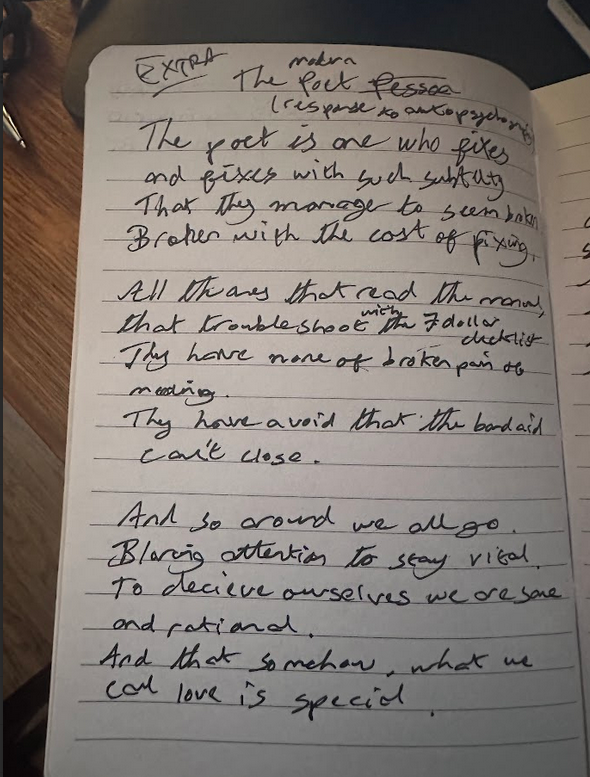 EXTRA
modern
The Poet Pessoa
(response to autopsychografia)
The poet is one who fixes
and fixes with such subtlty
That they manage to seem broken
Broken with the cost of fixing.
All the ones that read the manual,
that troubleshoot with the 7 dollar
checklist
They have none of broken pain of
meaning.
They have a void that the bandaid
can't close.
And so around we all go.
Blaring attention to stay vital.
To decieve ourselves we are sane
and rational.
And that somehow, what we
call love is special.